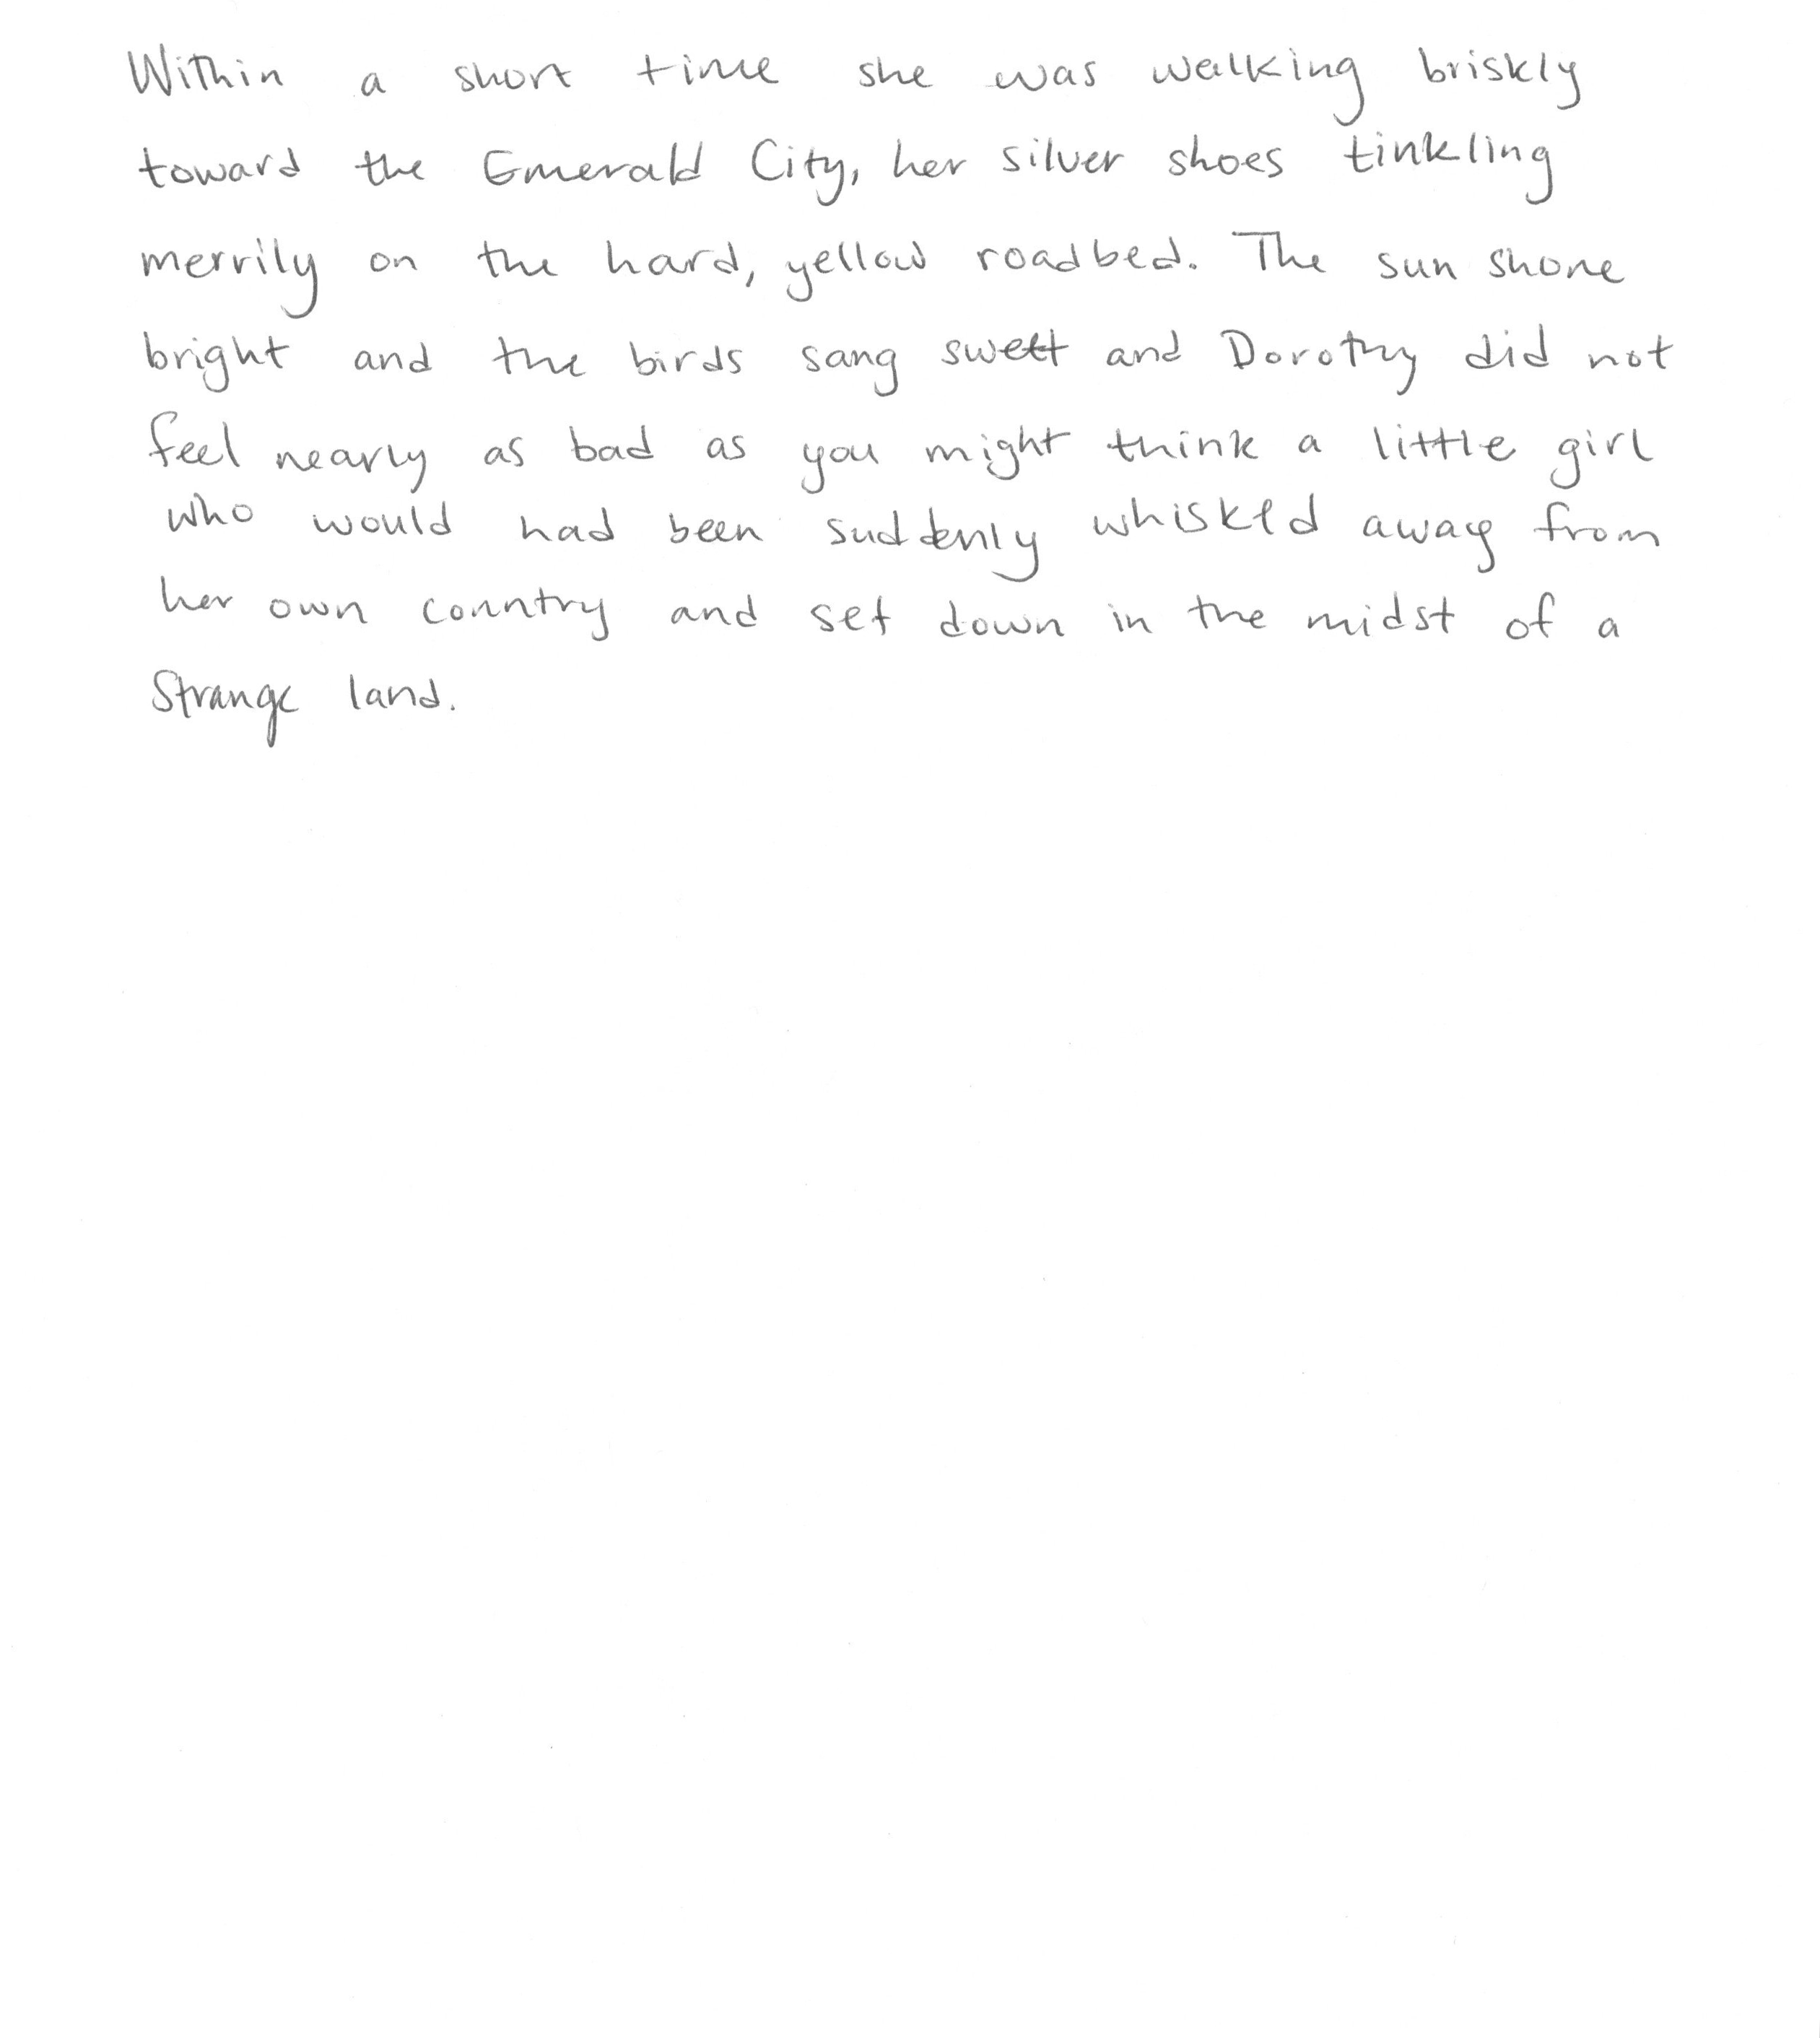 Within a short time she was walking briskly
toward the Emerald City, her silver shoes tinkling
merrily on the hard, yellow roadbed. The sun shone
bright and the birds sang swett and Dorothy did not
feel nearly as bad as you might think a little girl
who would had been suddenly whisked away from
her own country and set down in the midst of a
strange land.